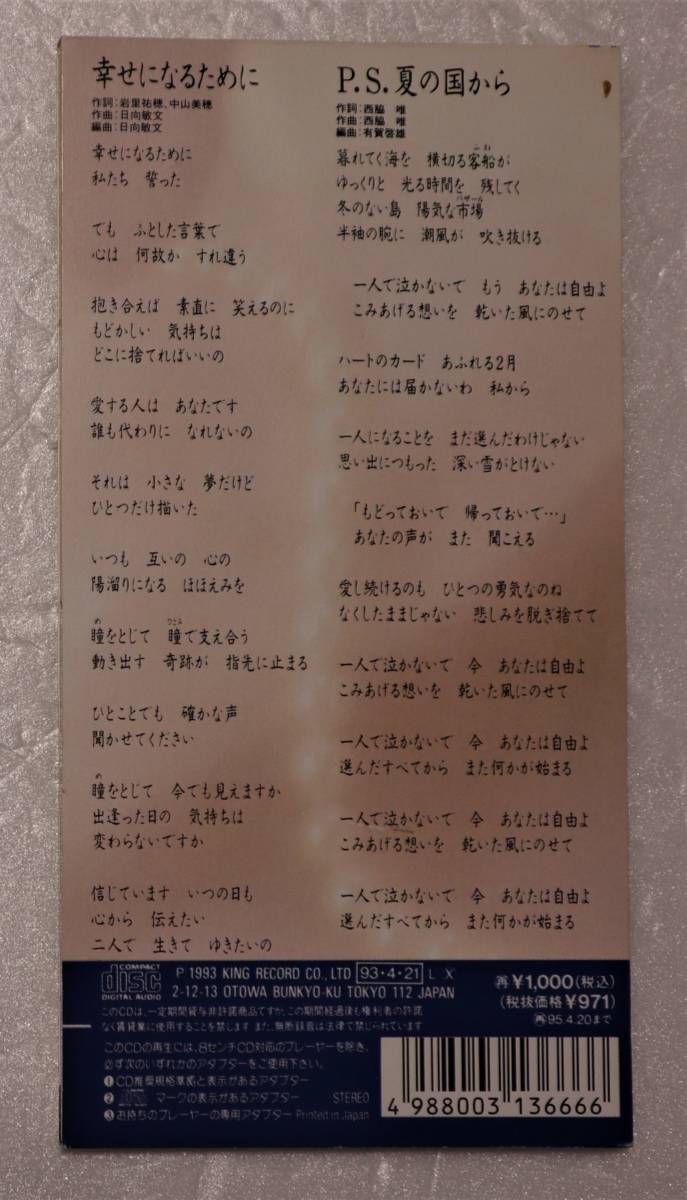 幸せになるために
作詞:岩里祐穂、中山美穂
作曲:日向敏文
編曲:日向敏文
幸せになるために
私たち 誓った
でも ふとした言葉で
心は 何故か すれ違う
抱き合えば 素直に 笑えるのに
もどかしい 気持ちは
どこに捨てればいいの
愛する人は あなたです
誰も代わりに なれないの
それは 小さな 夢だけど
ひとつだけ描いた
いつも 互いの 心の
陽溜りになる ほほえみを
め ひとみ
瞳をとじて 瞳で支え合う
動き出す 奇跡が 指先に止まる
ひとことでも 確かな声
聞かせてください
め
瞳をとじて 今でも見えますか
出逢った日の 気持ちは
変わらないですか
信じています いつの日も
心から 伝えたい
二人で 生きて ゆきたいの
P.S.夏の国から
作詞:西脇 唯
作曲:西脇 唯
編曲:有賀啓雄
ふね
暮れてく海を 横切る客船が
ゆっくりと 光る時間を 残してく
バザール
冬のない島 陽気な市場
半袖の腕に 潮風が 吹き抜ける
一人で泣かないで もう あなたは自由よ
こみあげる想いを 乾いた風にのせて
ハートのカード あふれる2月
あなたには届かないわ 私から
一人になることを まだ選んだわけじゃない
思い出につもった 深い雪がとけない
「もどっておいで 帰っておいで…」
あなたの声が また 聞こえる
愛し続けるのも ひとつの勇気なのね
なくしたままじゃない 悲しみを脱ぎ捨てて
一人で泣かないで 今 あなたは自由よ
こみあげる想いを 乾いた風にのせて
一人で泣かないで 今 あなたは自由よ
選んだすべてから また何かが始まる
一人で泣かないで 今 あなたは自由よ
こみあげる想いを 乾いた風にのせて
一人で泣かないで 今 あなたは自由よ
選んだすべてから また何かが始まる
COMPACT
disc
DIGITAL AUDIO
P 1993 KING RECORD CO., LTD 93・4・21 L X
2-12-13 OTOWA BUNKYO-KU TOKYO 112 JAPAN
このCDは、一定期間貸与非許諾商品ですが、この期間経過後も権利者の許諾
なく賃貸業に使用することを禁じます また、無断録音は法律で禁じられています
このCDの再生には、8センチCD対応のプレーヤーを除き、
必ず次のいずれかのアダプターをご使用下さい。
①CD推奨規格準拠と表示があるアダプター
② マークの表示があるアダプター STEREO
③お持ちのプレーヤーの専用アダプター Printed in Japan
再¥1,000(税込)
(税抜価格¥971)
再95.4.20まで
4 988003 136666